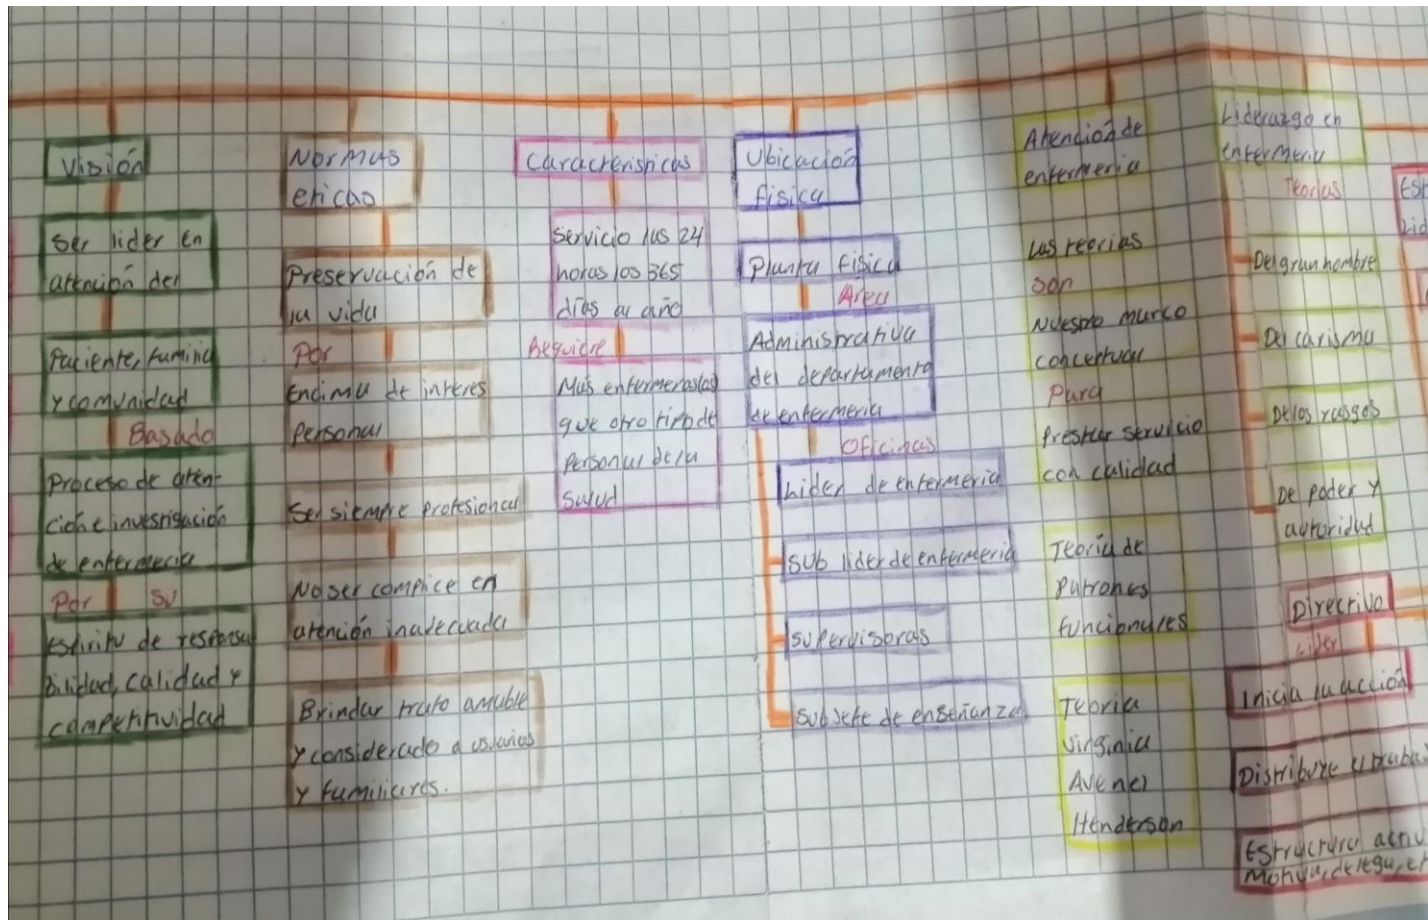 Visión
Ser lider en
atención del
Paciente, familia
y comunidad
Basado
Proceso de aten-
ción e investigación
de enfermeria
Por su
Espiritu de responsa
bilidad, calidad y
competitividad
Normas
eticas
Preservación de
la vida
Por
Encima de interes
Personal
Ser siempre profesional
No ser complice en
atención inadecuada
Brindar trato amable
y considerado a usuarios
y familiares.
Caracteristicas
Servicio las 24
horas los 365
días al año
Requiere
Mas enfermeras(os)
que otro tipo de
Personal de la
Salud
Ubicación
física
Planta física
Area
Administrativa
del departamento
de enfermeria
Oficinas
Lider de enfermeria
Sub lider de enfermeria
Supervisoras
Subjefe de enseñanza
Atención de
enfermeria
Las teorias
son
Nuestro marco
conceptual
Para
Prestar servicio
con calidad
Teoría de
Patrones
funcionales
Teoria
Virginia
Avenel
Henderson
Liderazgo en
enfermeria
Teorías
Del gran hombre
Del carisma
De los rasgos
De poder y
autoridad
Directivo
Lider
Inicia la acción
Distribuye
Estructura
Motiva, delega,